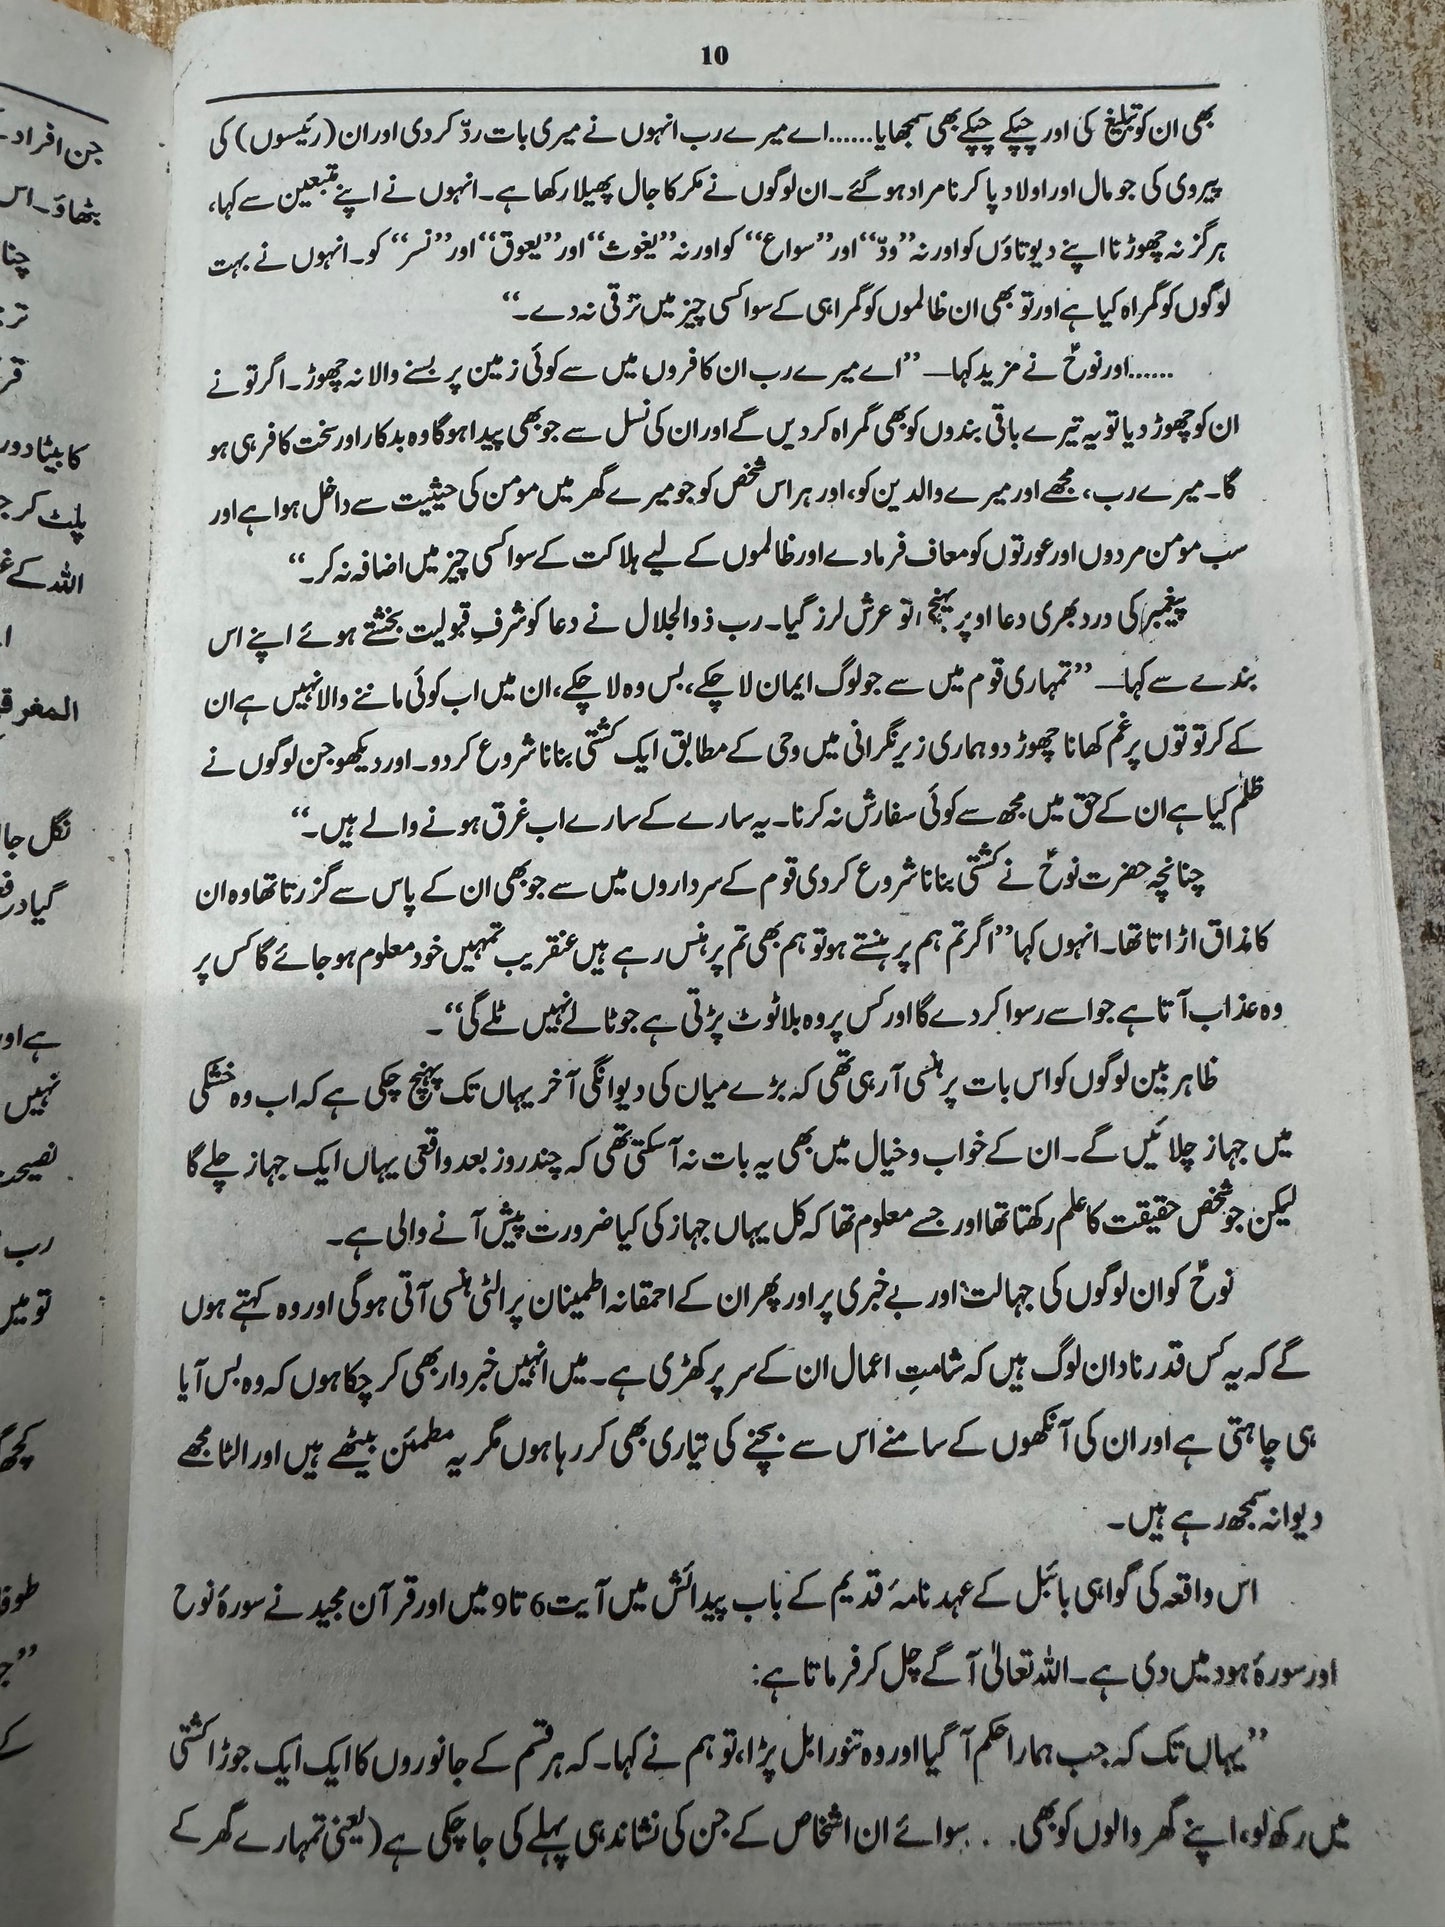 10
بھی ان کو تبلیغ کی اور چپکے چپکے بھی سمجھایا......اے میرے رب انہوں نے میری بات ردّ کر دی اور ان (رئیسوں) کی
پیروی کی جو مال اور اولاد پا کر نامراد ہو گئے۔ ان لوگوں نے مکر کا جال پھیلا رکھا ہے۔ انہوں نے اپنے متبعین سے کہا،
ہرگز نہ چھوڑنا اپنے دیوتاؤں کو اور نہ ”ودّ“ اور ”سواع“ کو اور نہ ”یغوث“ اور ”یعوق“ اور ”نسر“ کو۔ انہوں نے بہت
لوگوں کو گمراہ کیا ہے اور تو بھی ان ظالموں کو گمراہی کے سوا کسی چیز میں ترقی نہ دے۔“
......اور نوحؑ نے مزید کہا— ”اے میرے رب ان کافروں میں سے کوئی زمین پر بسنے والا نہ چھوڑ۔ اگر تو نے
ان کو چھوڑ دیا تو یہ تیرے باقی بندوں کو بھی گمراہ کر دیں گے اور ان کی نسل سے جو بھی پیدا ہوگا وہ بدکار اور سخت کافر ہی ہو
گا۔ میرے رب، مجھے اور میرے والدین کو، اور ہر اس شخص کو جو میرے گھر میں مومن کی حیثیت سے داخل ہوا ہے اور
سب مومن مردوں اور عورتوں کو معاف فرما دے اور ظالموں کے لیے ہلاکت کے سوا کسی چیز میں اضافہ نہ کر۔“
پیغمبر کی درد بھری دعا اوپر پہنچی، تو عرش لرز گیا۔ رب ذوالجلال نے دعا کو شرفِ قبولیت بخشتے ہوئے اپنے اس
بندے سے کہا— ”تمہاری قوم میں سے جو لوگ ایمان لا چکے، بس وہ لا چکے، ان میں اب کوئی ماننے والا نہیں ہے ان
کے کرتوتوں پر غم کھانا چھوڑ دو ہماری زیر نگرانی میں وحی کے مطابق ایک کشتی بنانا شروع کر دو۔ اور دیکھو جن لوگوں نے
ظلم کیا ہے ان کے حق میں مجھ سے کوئی سفارش نہ کرنا۔ یہ سارے کے سارے اب غرق ہونے والے ہیں۔“
چنانچہ حضرت نوحؑ نے کشتی بنانا شروع کر دی قوم کے سرداروں میں سے جو بھی ان کے پاس سے گزرتا تھا وہ ان
کا مذاق اڑاتا تھا۔ انہوں کہا ”اگر تم ہم پر ہنستے ہو تو ہم بھی تم پر ہنس رہے ہیں عنقریب تمہیں خود معلوم ہو جائے گا کس پر
وہ عذاب آتا ہے جو اسے رسوا کر دے گا اور کس پر وہ بلا ٹوٹ پڑتی ہے جو ٹالے نہیں ٹلے گی“۔
ظاہر بین لوگوں کو اس بات پر ہنسی آ رہی تھی کہ بڑے میاں کی دیوانگی آخر یہاں تک پہنچ چکی ہے کہ اب وہ خشکی
میں جہاز چلائیں گے۔ ان کے خواب و خیال میں بھی یہ بات نہ آ سکتی تھی کہ چند روز بعد واقعی یہاں ایک جہاز چلے گا
لیکن جو شخص حقیقت کا علم رکھتا تھا اور جسے معلوم تھا کہ کل یہاں جہاز کی کیا ضرورت پیش آنے والی ہے۔
نوحؑ کو ان لوگوں کی جہالت اور بے خبری پر اور پھر ان کے احمقانہ اطمینان پر الٹی ہنسی آتی ہوگی اور وہ کہتے ہوں
گے کہ یہ کس قدر نادان لوگ ہیں کہ شامتِ اعمال ان کے سر پر کھڑی ہے۔ میں انہیں خبردار بھی کر چکا ہوں کہ وہ بس آیا
ہی چاہتی ہے اور ان کی آنکھوں کے سامنے اس سے بچنے کی تیاری بھی کر رہا ہوں مگر یہ مطمئن بیٹھے ہیں اور الٹا مجھے
دیوانہ سمجھ رہے ہیں۔
اس واقعہ کی گواہی بائبل کے عہد نامۂ قدیم کے باب پیدائش میں آیت 6 تا 9 میں اور قرآن مجید نے سورۂ نوح
اور سورۂ ہود میں دی ہے۔ اللہ تعالیٰ آگے چل کر فرماتا ہے:
”یہاں تک کہ جب ہمارا حکم آ گیا اور وہ تنور ابل پڑا، تو ہم نے کہا۔ کہ ہر قسم کے جانوروں کا ایک ایک جوڑا کشتی
میں رکھ لو، اپنے گھر والوں کو بھی۔ . . سوائے ان اشخاص کے جن کی نشاندہی پہلے کی جا چکی ہے (یعنی تمہارے گھر کے
جن افراد
بٹھاؤ۔ اس
کا بیٹا دور
پلٹ کر
اللہ کے
نگل
گیا
ہے اور
نہیں
رب
تو میں